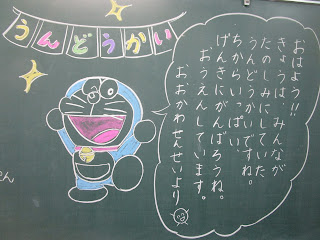 うんどうかい
おはよう!!
きょうは、みんなが
たのしみにしていた
うんどうかいですね。
ちからいっぱい、
げんきにがんばろうね。
おうえんしています。
おおかわせんせいより